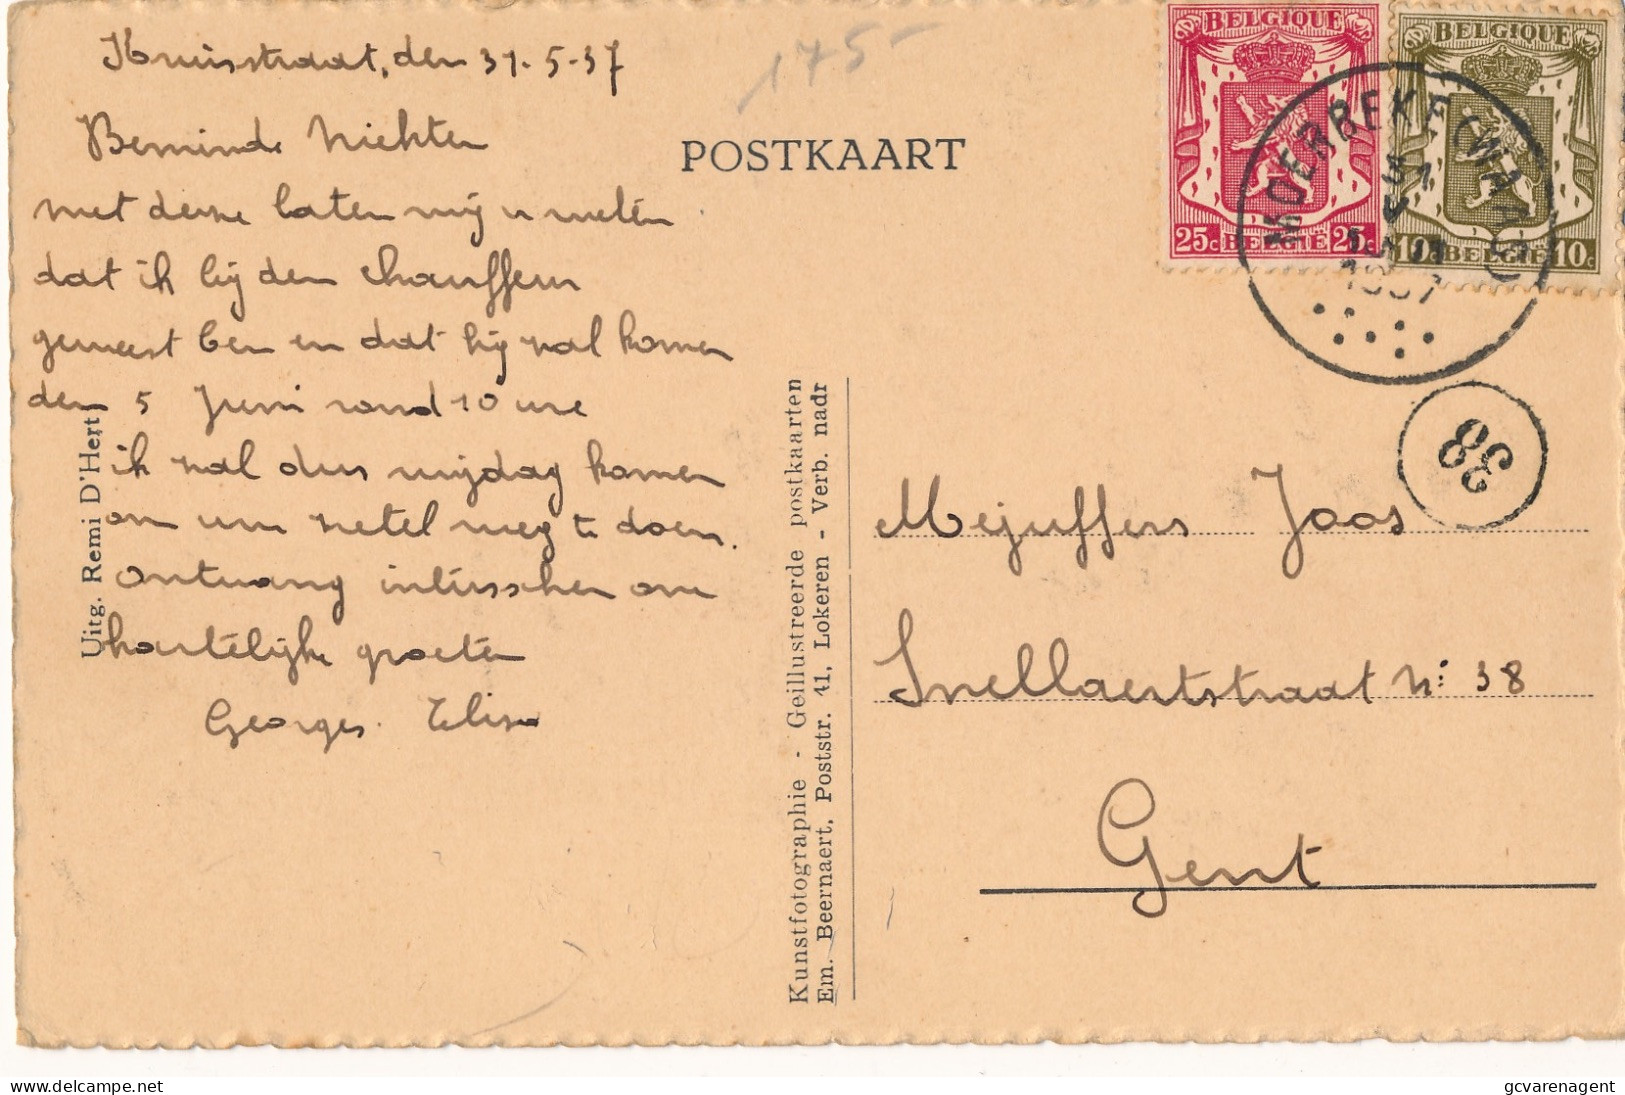 Kruisstraat, den 31-5-37
175-
Beminde Nichten
met deze laten wij u weten
dat ik bij den chauffeur
geweest ben en dat hij zal komen
den 5 Juni rond 10 ure
ik zal dus vrijdag komen
om uw zetel weg te doen.
ontvang intusschen onze
hartelijke groeten
Georges. Eliza
Uitg. Remi D'Hert
POSTKAART
Kunstfotographie - Geillustreerde postkaarten
Em. Beernaert, Poststr. 41, Lokeren - Verb. nadr
BELGIQUE
25c BELGIË 25c
BELGIQUE
10c BELGIË 10c
MOERBEKE (WAAS)
31
1937
38
Mejuffers Joos
Snellaertstraat N: 38
Gent
gcvarenagent